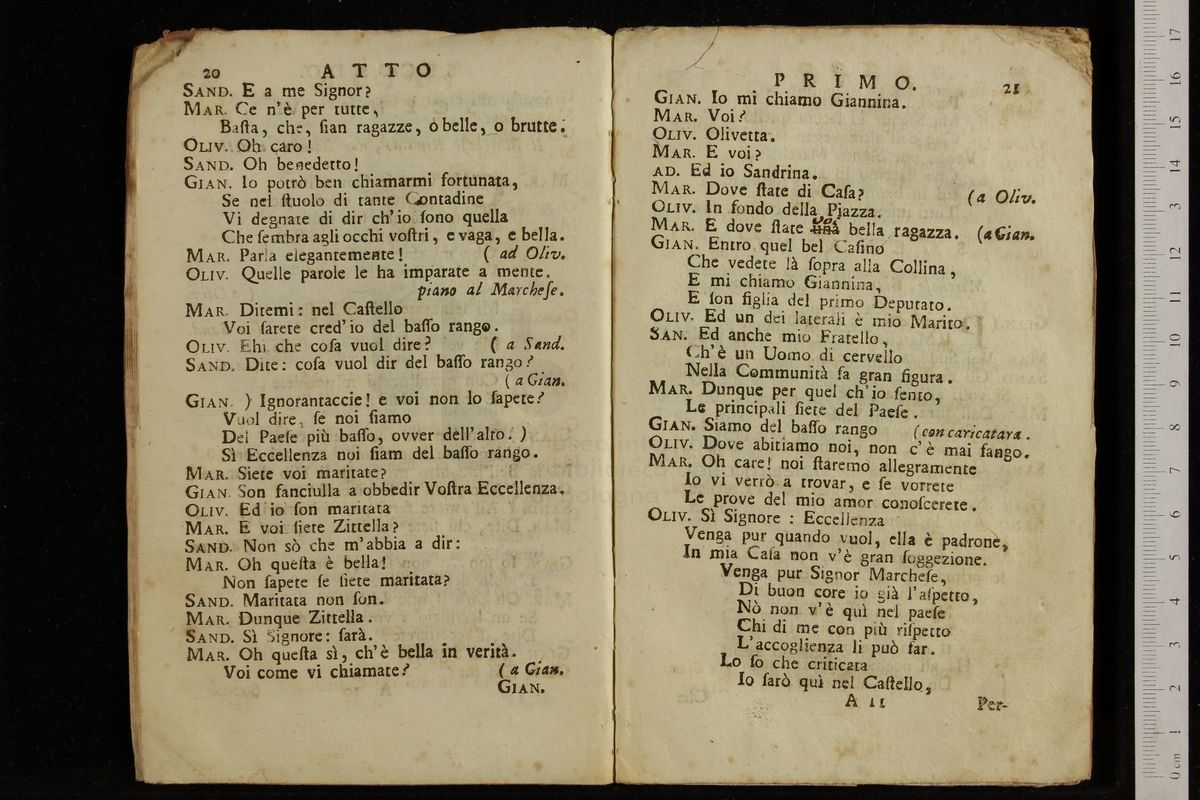 20 ATTO
SAND. E a me Signor?
MAR. Ce n'è per tutte,
Baſta, che, ſian ragazze, o belle, o brutte.
OLIV. Oh caro!
SAND. Oh benedetto!
GIAN. Io potrò ben chiamarmi fortunata,
Se nel ſtuolo di tante Contadine
Vi degnate di dir ch'io ſono quella
Che ſembra agli occhi voſtri, e vaga, e bella.
MAR. Parla elegantemente! ( ad Oliv.
OLIV. Quelle parole le ha imparate a mente.
piano al Marcheſe.
MAR. Ditemi: nel Caſtello
Voi ſarete cred'io del baſſo rango.
OLIV. Ehi che coſa vuol dire? ( a Sand.
SAND. Dite: coſa vuol dir del baſſo rango?
( a Gian.
GIAN. ) Ignorantaccie! e voi non lo ſapete?
Vuol dire, ſe noi ſiamo
Del Paeſe più baſſo, ovver dell'alto. )
Sì Eccellenza noi ſiam del baſſo rango.
MAR. Siete voi maritate?
GIAN. Son fanciulla a obbedir Voſtra Eccellenza.
OLIV. Ed io ſon maritata
MAR. E voi ſiete Zittella?
SAND. Non sò che m'abbia a dir:
MAR. Oh queſta è bella!
Non ſapete ſe ſiete maritata?
SAND. Maritata non ſon.
MAR. Dunque Zittella.
SAND. Sì Signore: ſarà.
MAR. Oh queſta sì, ch'è bella in verità.
Voi come vi chiamate? ( a Gian.
GIAN.
PRIMO. 21
GIAN. Io mi chiamo Giannina.
MAR. Voi?
OLIV. Olivetta.
MAR. E voi?
AD. Ed io Sandrina.
MAR. Dove ſtate di Caſa? (a Oliv.
OLIV. In fondo della Piazza.
MAR. E dove ſtate voi bella ragazza. (a Gian.
GIAN. Entro quel bel Caſino
Che vedete là ſopra alla Collina,
E mi chiamo Giannina,
E ſon figlia del primo Deputato.
OLIV. Ed un dei laterali è mio Marito.
SAN. Ed anche mio Fratello,
Ch'è un Uomo di cervello
Nella Comunità fa gran figura.
MAR. Dunque per quel ch'io ſento,
Le principali ſiete del Paeſe.
GIAN. Siamo del baſſo rango (con caricatara.
OLIV. Dove abitiamo noi, non c'è mai fango.
MAR. Oh care! noi ſtaremo allegramente
Io vi verrò a trovar, e ſe vorrete
Le prove del mio amor conoſcerete.
OLIV. Sì Signore : Eccellenza
Venga pur quando vuol, ella è padrone,
In mia Caſa non v'è gran ſoggezione.
Venga pur Signor Marcheſe,
Di buon core io già l'aſpetto,
Nò non v'è quì nel paeſe
Chi di me con più riſpetto
L'accoglienza li può far.
Lo ſo che criticata
Io ſarò quì nel Caſtello,
A 11 Per-